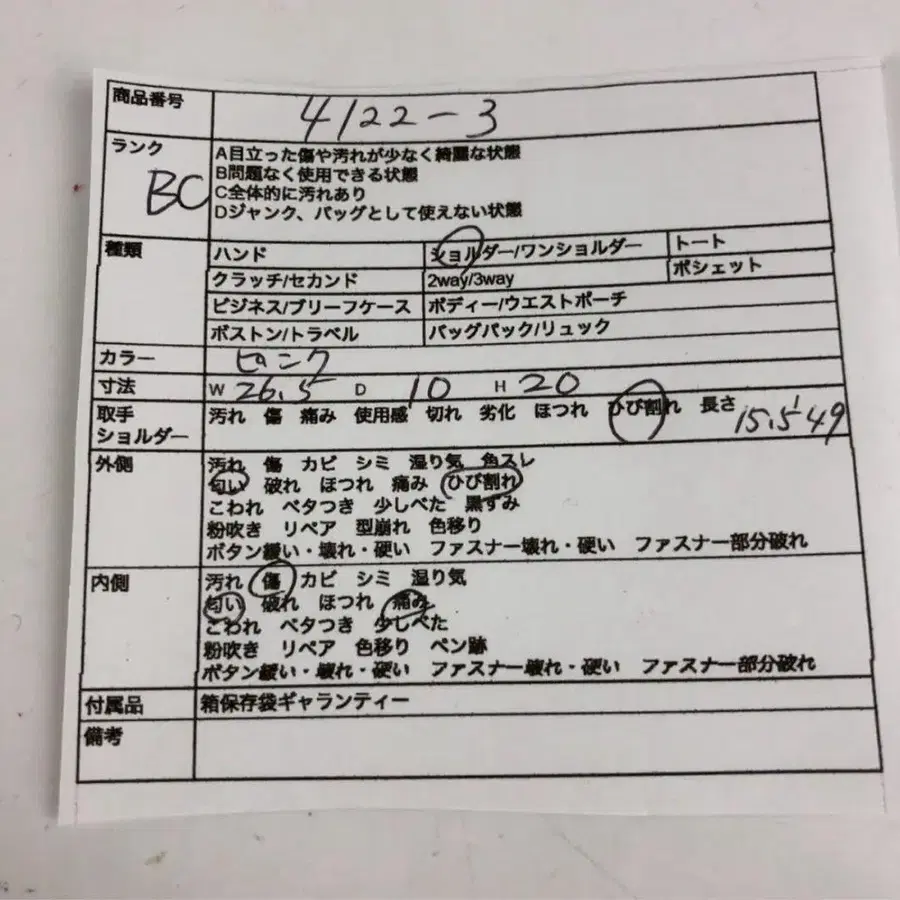 商品番号 4122-3
ランク BC
A目立った傷や汚れが少なく綺麗な状態
B問題なく使用できる状態
C全体的に汚れあり
Dジャンク、バッグとして使えない状態
種類 ハンド ショルダー/ワンショルダー トート
クラッチ/セカンド 2way/3way ポシェット
ビジネス/ブリーフケース ボディー/ウエストポーチ
ボストン/トラベル バッグパック/リュック
カラー ピンク
寸法 W 26.5 D 10 H 20
取手 汚れ 傷 痛み 使用感 切れ 劣化 ほつれ ひび割れ 長さ 15.5 49
ショルダー
外側 汚れ 傷 カビ シミ 湿り気 角スレ
匂い 破れ ほつれ 痛み ひび割れ
こわれ ベタつき 少しべた 黒ずみ
粉吹き リペア 型崩れ 色移り
ボタン緩い・壊れ・硬い ファスナー壊れ・硬い ファスナー部分破れ
内側 汚れ 傷 カビ シミ 湿り気
匂い 破れ ほつれ 痛み
こわれ ベタつき 少しべた
粉吹き リペア 色移り ペン跡
ボタン緩い・壊れ・硬い ファスナー壊れ・硬い ファスナー部分破れ
付属品 箱保存袋ギャランティー
備考